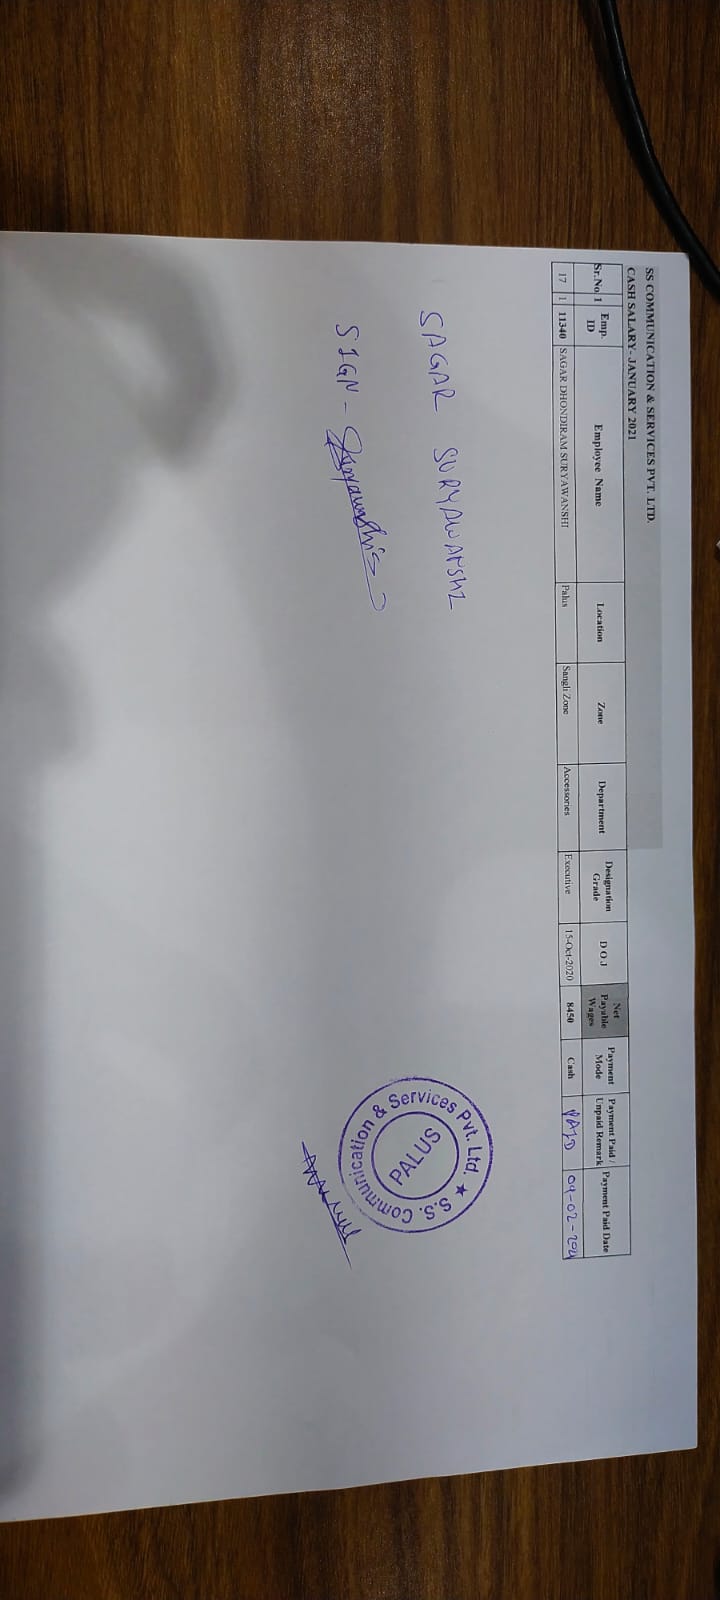 SS COMMUNICATION & SERVICES PVT. LTD.
CASH SALARY- JANUARY 2021
Sr.No 1 Emp. ID Employee Name Location Zone Department Designation Grade D O.J Net Payable Wages Payment Mode Payment Paid / Unpaid Remark Payment Paid Date
17 1 11340 SAGAR DHONDIRAM SURYAWANSHI Palus Sangli Zone Accessories Executive 15-Oct-2020 8450 Cash PAID 04-02-2021
SAGAR SURYAWANSHI
SIGN - Suryawanshi
S.S. Communication & Services Pvt. Ltd. ★
PALUS